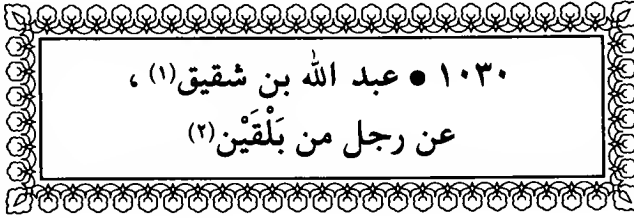 ١٠٣٠ ● عبد الله بن شقيق(١) ،
عن رجل من بَلْقَيْن(٢)